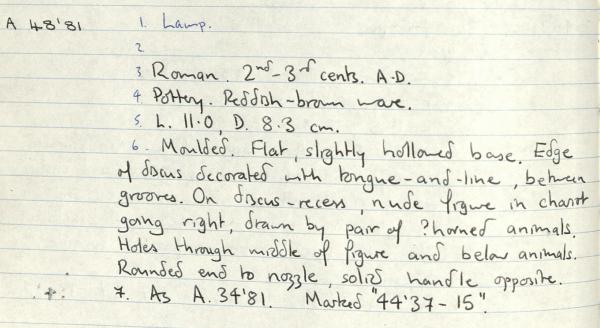 A 48'81 1. Lamp.
2
3 Roman. 2nd-3rd cents. A.D.
4 Pottery. Reddish-brown ware.
5. L. 11.0, D. 8.3 cm.
6. Moulded. Flat, slightly hollowed base. Edge
of discus decorated with tongue-and-line, between
grooves. On discus-recess, nude figure in chariot
going right, drawn by pair of ?horned animals.
Holes through middle of figure and below animals.
Rounded end to nozzle, solid handle opposite.
7. As A. 34'81. Marked "44'37-15".